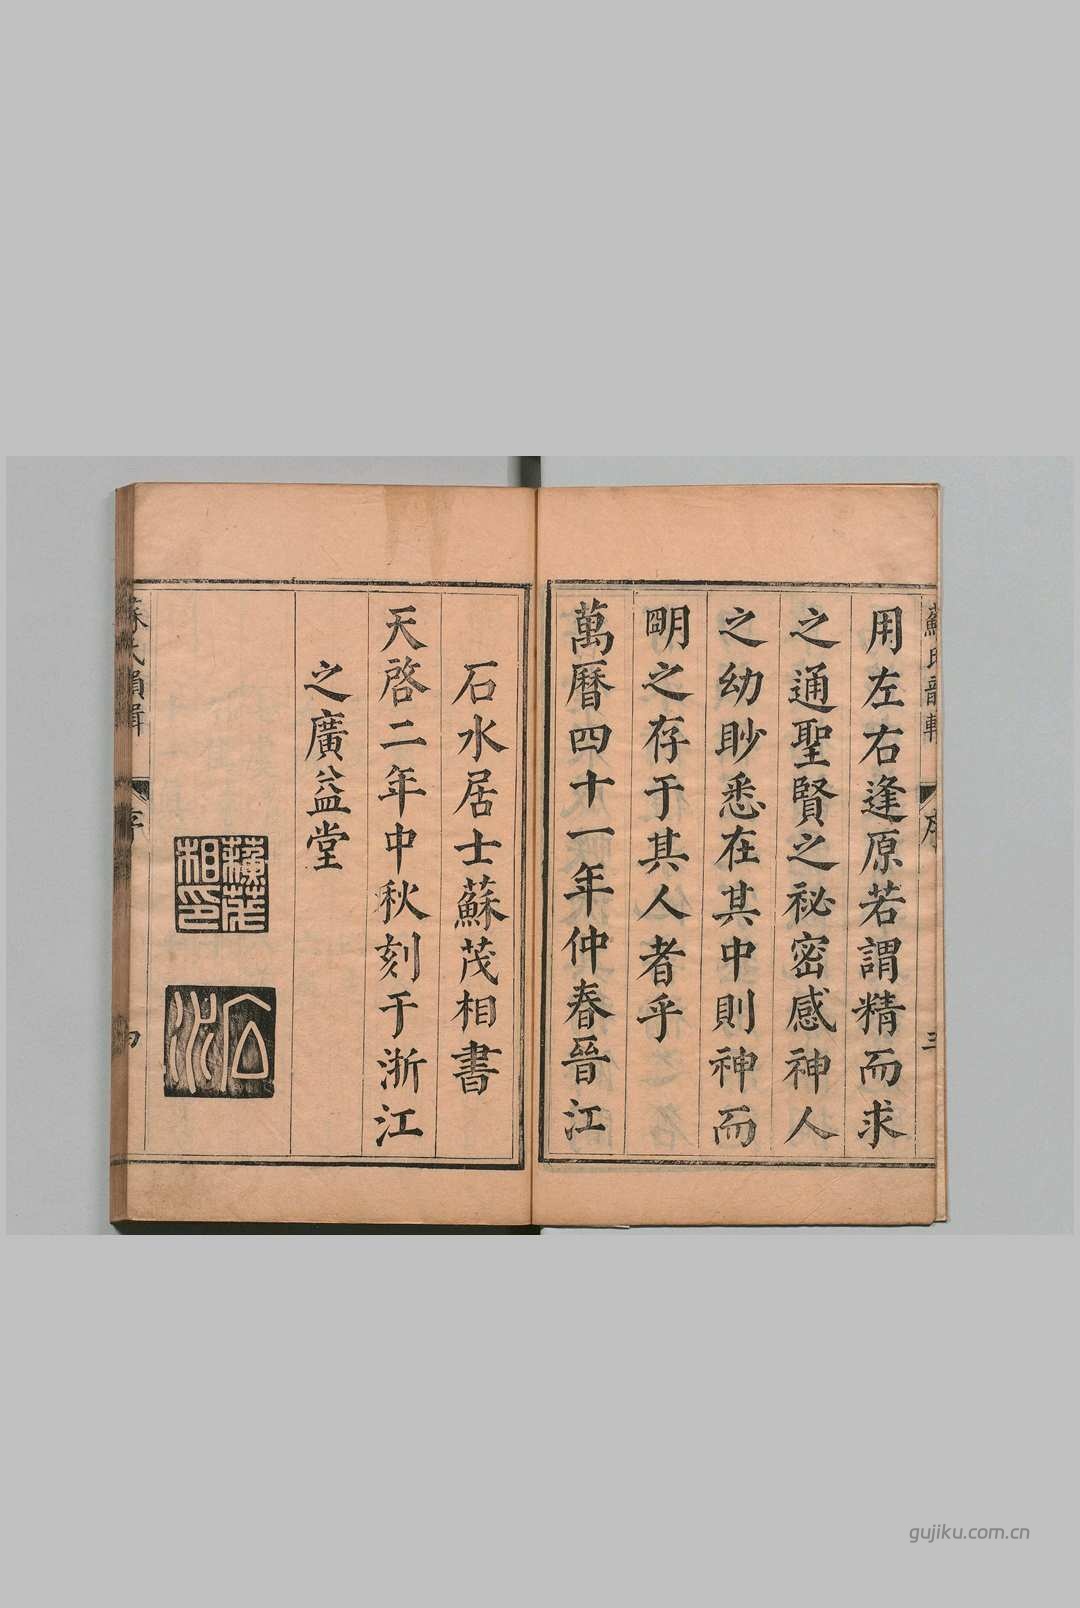 蘇氏韻輯
序
三
用左右逢原若謂精而求
之通聖賢之祕密感神人
之幼眇悉在其中則神而
明之存于其人者乎
萬曆四十一年仲春晉江
石水居士蘇茂相書
天啓二年中秋刻于浙江
之廣益堂
蘇茂
相印
石水
蘇氏韻輯
序
四
gujiku.com.cn